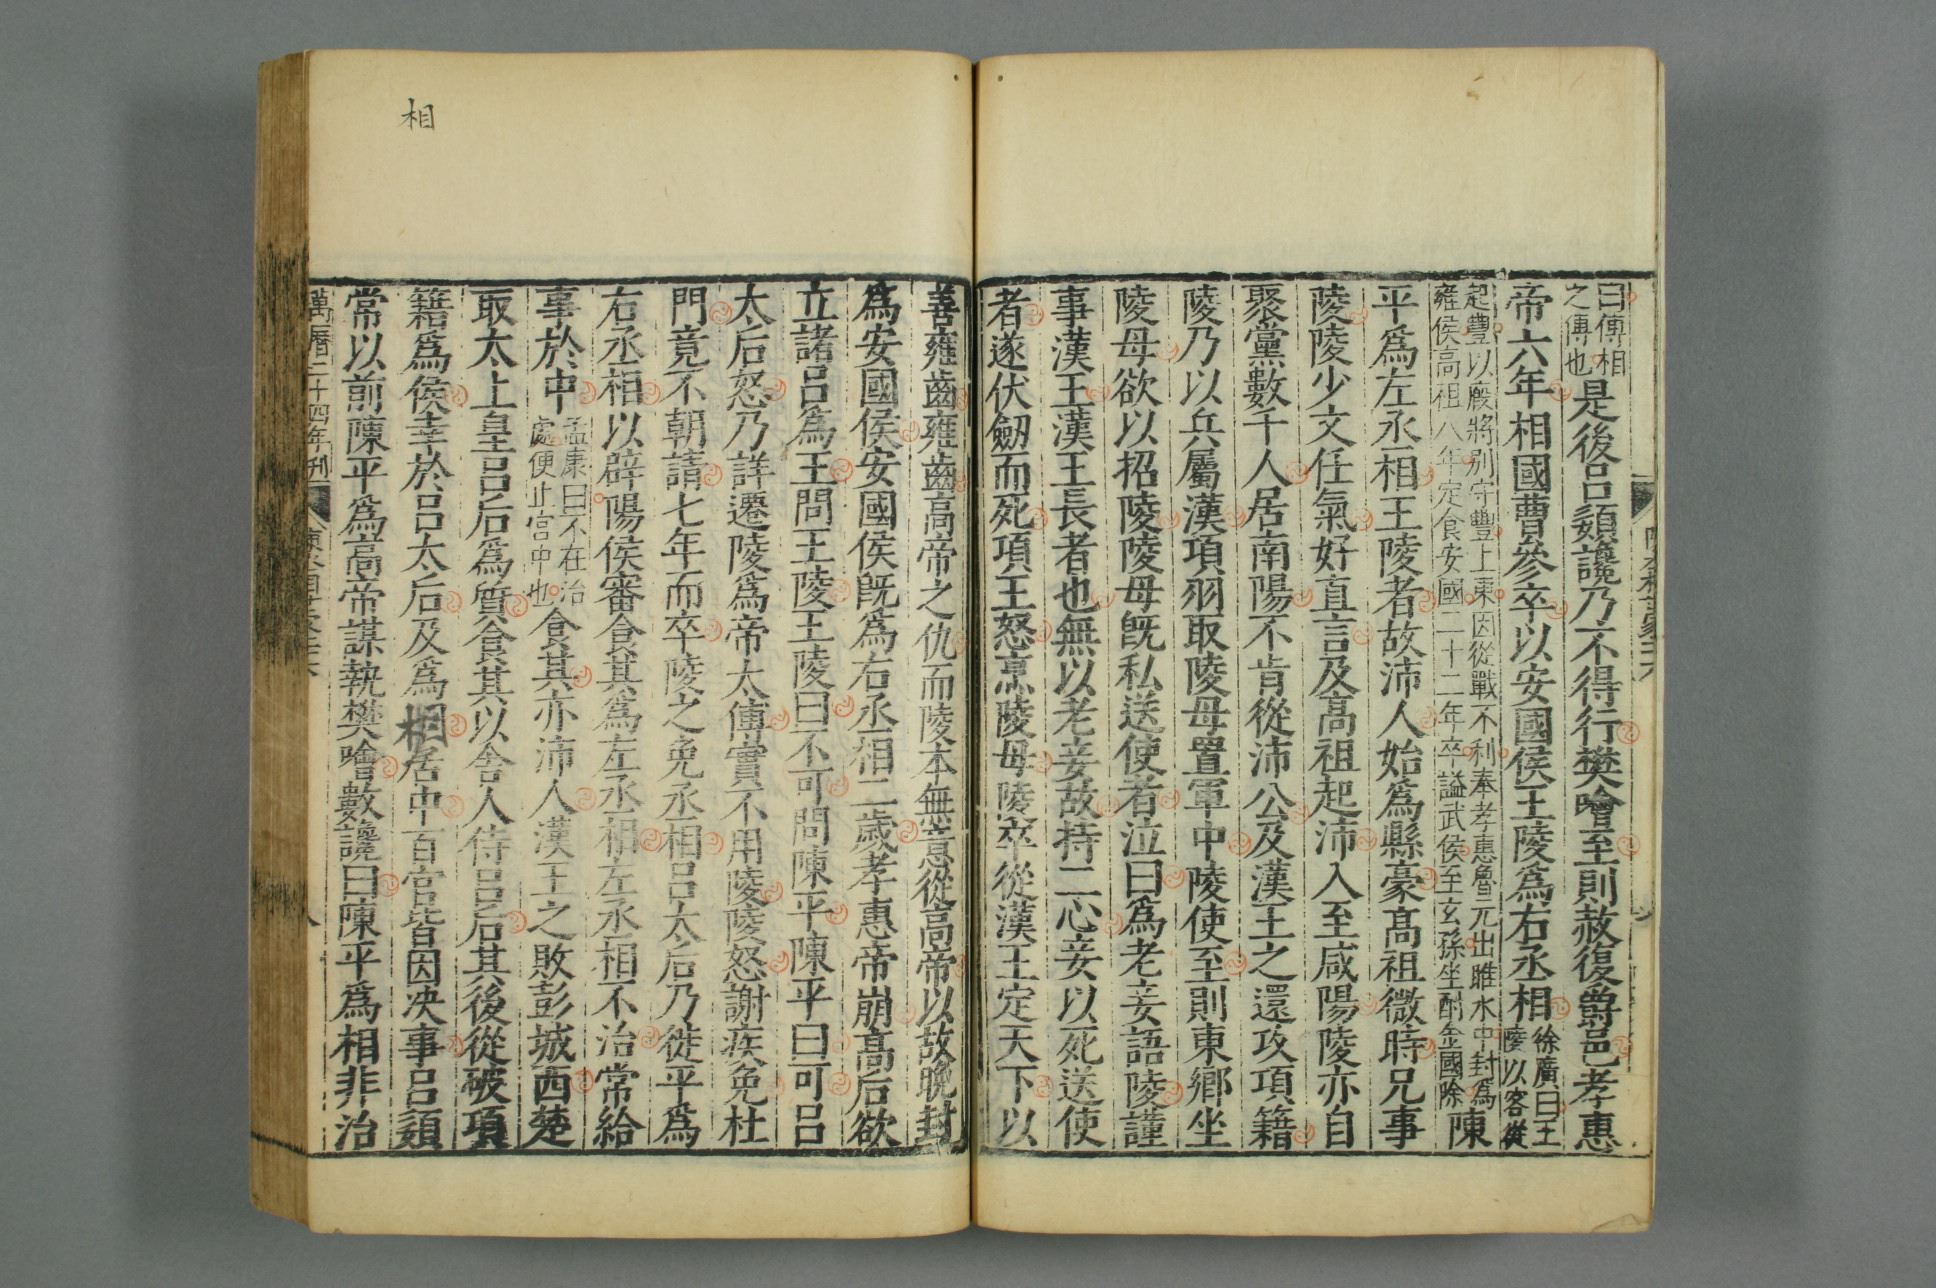 曰傅相之傅也是後呂嬃讒乃不得行樊噲至則赦復爵邑孝惠
帝六年相國曹參卒以安國侯王陵爲右丞相徐廣曰王陵以客從
起豐以廄將別守豐上東因從戰不利奉孝惠魯元出睢水中封爲雍侯高祖八年定食安國二十二年卒謚武侯至玄孫坐酎金國除陳
平爲左丞相王陵者故沛人始爲縣豪高祖微時兄事
陵陵少文任氣好直言及高祖起沛入至咸陽陵亦自
聚黨數千人居南陽不肯從沛公及漢王之還攻項籍
陵乃以兵屬漢項羽取陵母置軍中陵使至則東鄉坐
陵母欲以招陵陵母旣私送使者泣曰爲老妾語陵謹
事漢王漢王長者也無以老妾故持二心妾以死送使
者遂伏劒而死項王怒烹陵母陵卒從漢王定天下以
善雍齒雍齒高帝之仇而陵本無意從高帝以故晚封
爲安國侯安國侯旣爲右丞相二歲孝惠帝崩高后欲
立諸呂爲王問王陵王陵曰不可問陳平陳平曰可呂
太后怒乃詳遷陵爲帝太傅實不用陵陵怒謝疾免杜
門竟不朝請七年而卒陵之免丞相呂太后乃徙平爲
右丞相以辟陽侯審食其爲左丞相左丞相不治常給
事於中孟康曰不在治處便止宮中也食其亦沛人漢王之敗彭城西楚
取太上皇呂后爲質食其以舍人侍呂后其後從破項
籍爲侯幸於呂太后及爲相居中百官皆因決事呂嬃
常以前陳平爲高帝謀執樊噲數讒曰陳平爲相非治
萬曆二十四年刊
八
相